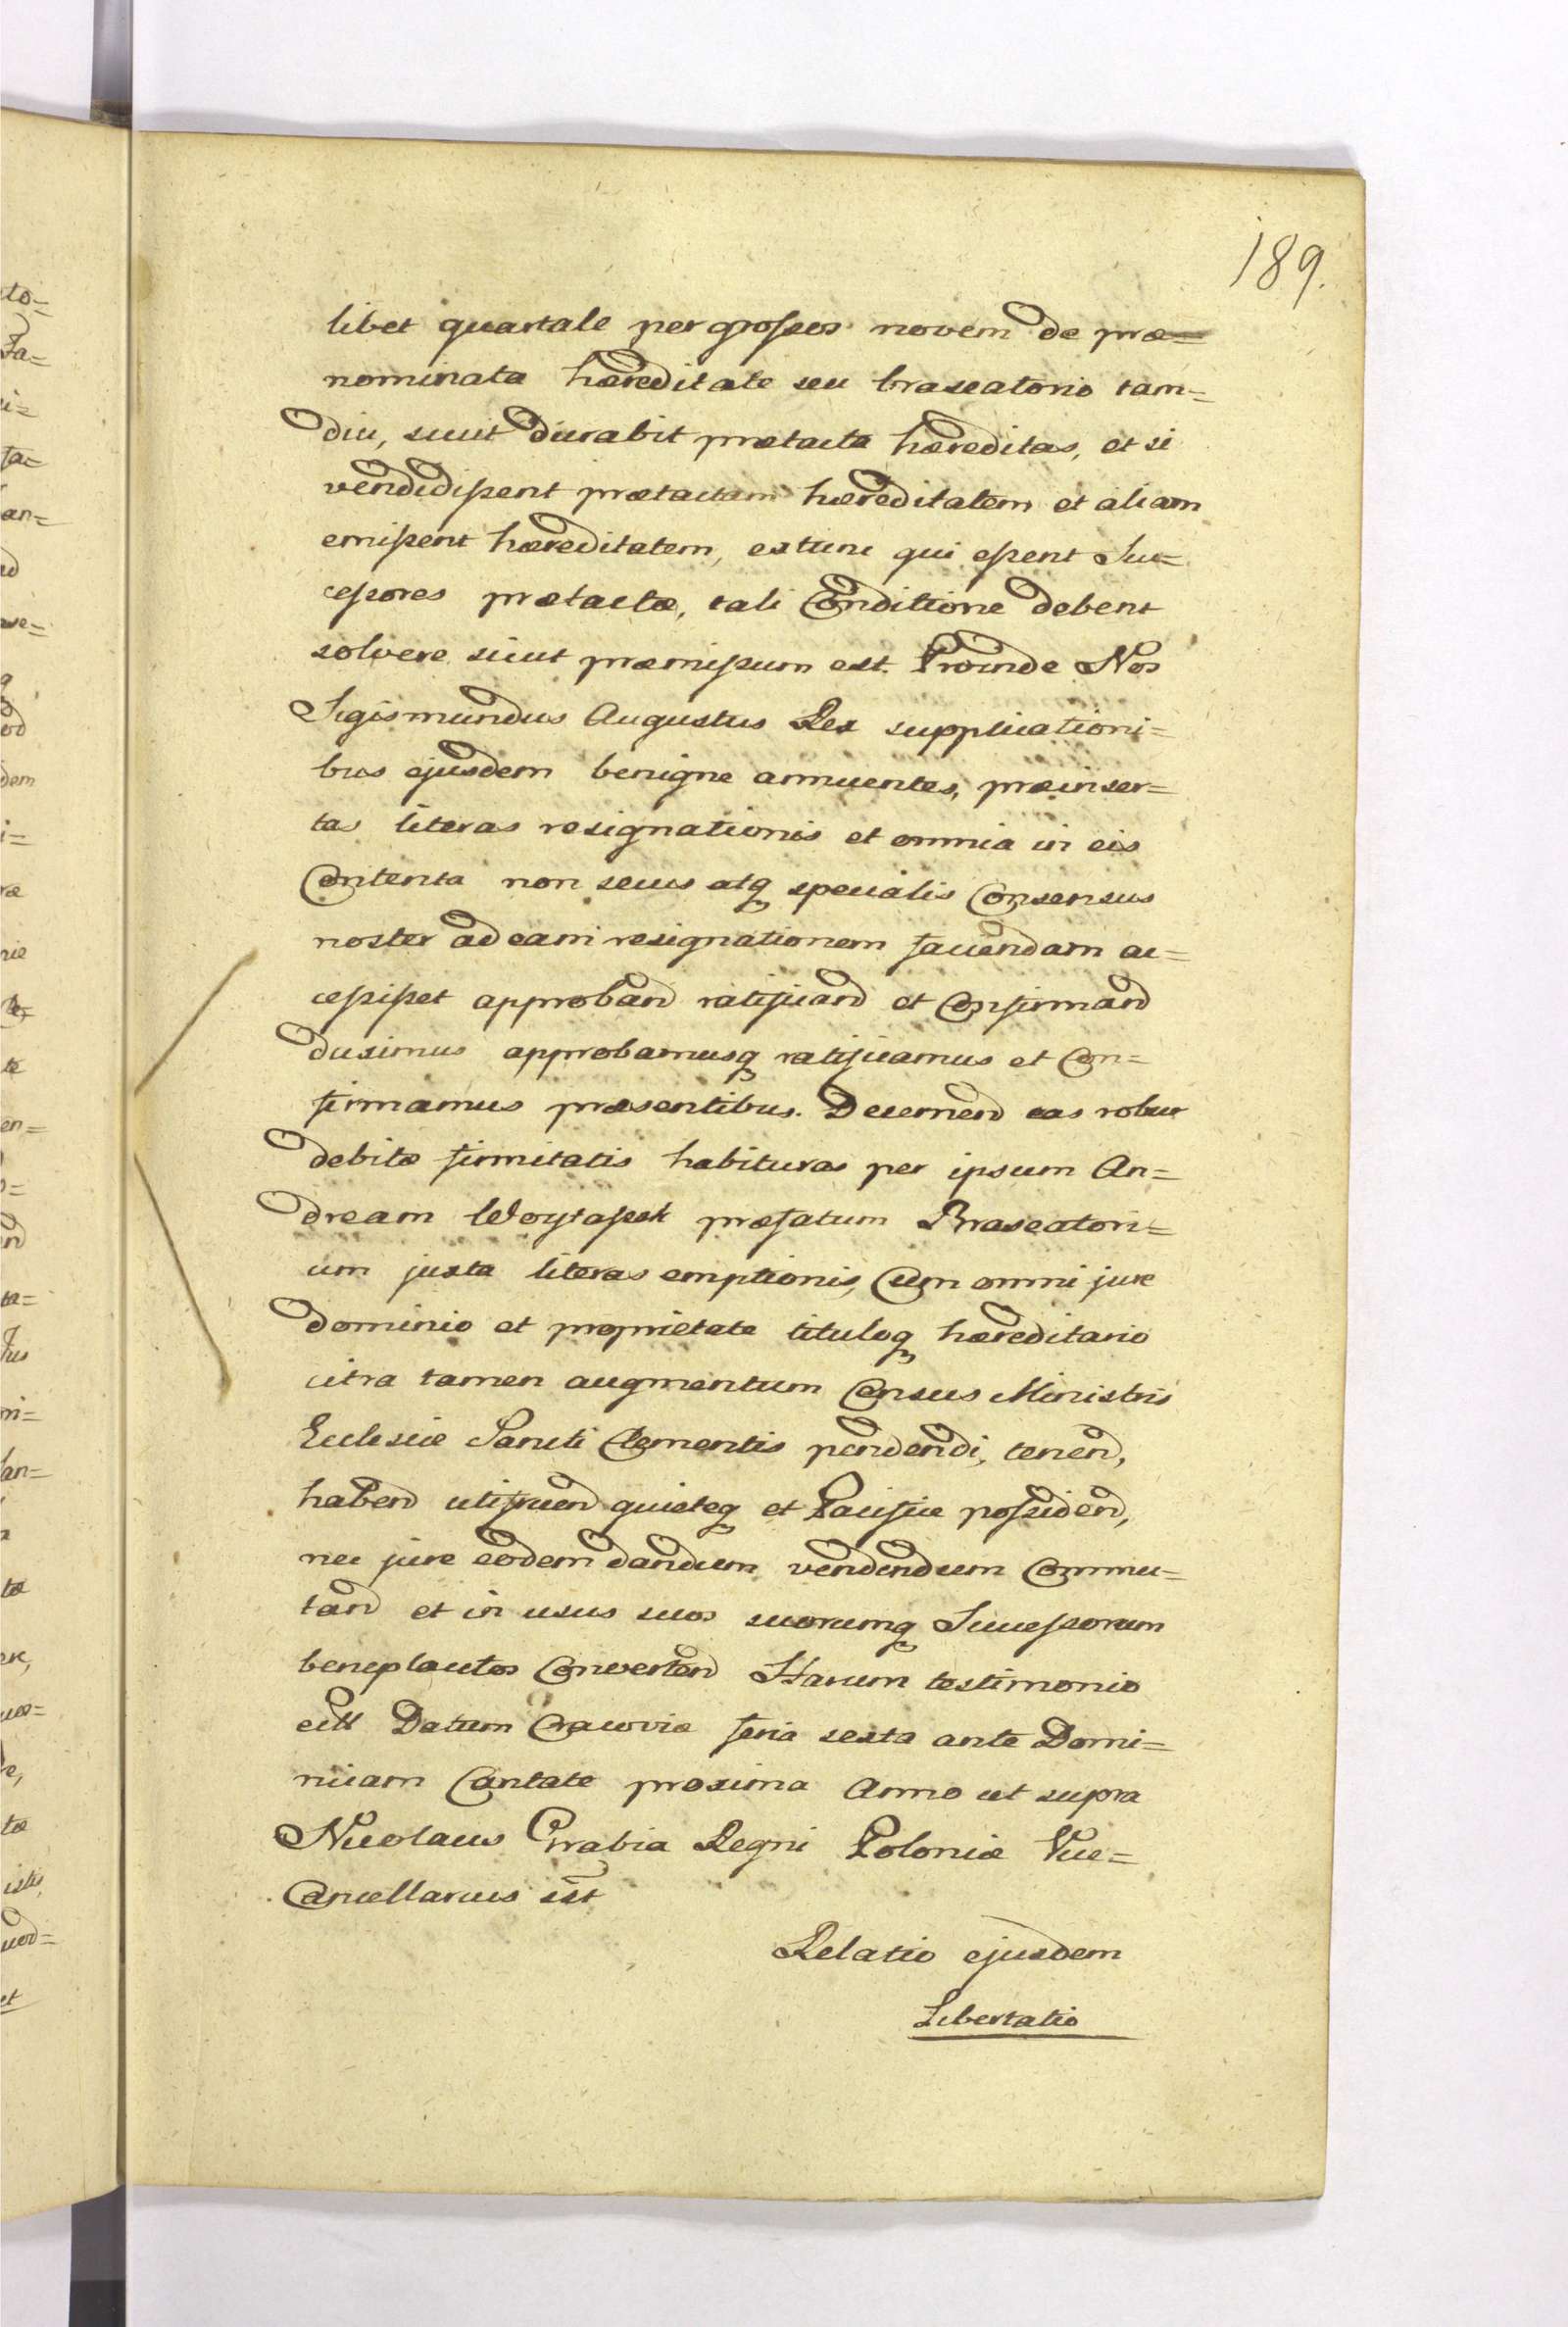 189.
libet quartale per grossos novem de præ=
nominata hæreditate seu braseatorio tam=
diu, sicut durabit prætacta hæreditas, et si
vendidissent prætactam hæreditatem et aliam
emissent hæreditatem, extunc qui essent Suc=
cessores prætactæ, tali Conditione debent
solvere sicut præmissum est. Proinde Nos
Sigismundus Augustus Rex supplicationi=
bus ejusdem benigne annuentes, præinser=
tas literas resignationis et omnia in eis
Contenta non secus atq specialis Consensus
noster ad eam resignationem faciendam ac=
cessisset approband ratificand et Confirmand
duximus approbamusq ratificamus et Con=
firmamus præsentibus. Decernend eas robur
debitæ firmitatis habituras per ipsum An=
dream Woytassek præfatum Braseatori=
um juxta literas emptionis, Cum omni jure
dominio et proprietate tituloq hæreditario
citra tamen augmentum Census Ministris
Ecclesiæ Sancti Clementis pendendi, tenend,
habend utifruend quieteq et Pacifice possidend,
nec jure eodem dandum vendendum Commu=
tand et in usus suos suorumq Successorum
beneplacitos Convertend Harum testimonio
ect Datum Cracoviæ feria sexta ante Domi=
nicam Cantate proxima Anno ut supra
Nicolaus Grabia Regni Poloniæ Vice=
Cancellarius sst
Relatio ejusdem
Libertatio